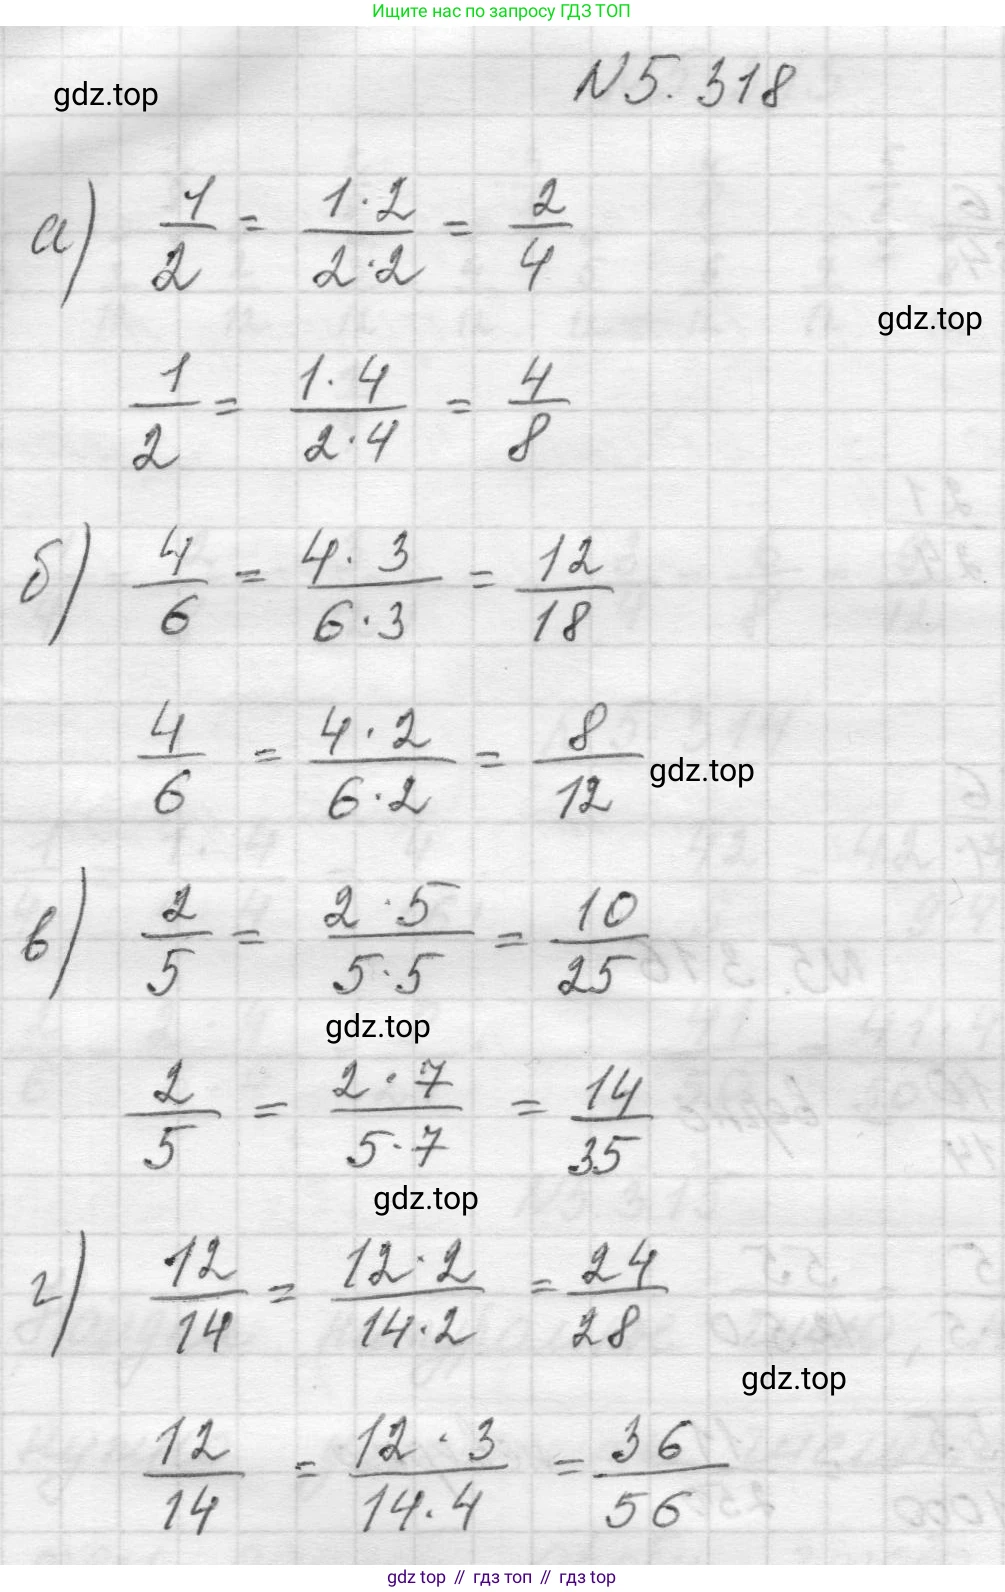 Ищите нас по запросу ГДЗ ТОП
N 5. 318
gdz.top
а) 1/2 = 1·2/2·2 = 2/4
gdz.top
1/2 = 1·4/2·4 = 4/8
б) 4/6 = 4·3/6·3 = 12/18
4/6 = 4·2/6·2 = 8/12
gdz.top
в) 2/5 = 2·5/5·5 = 10/25
gdz.top
2/5 = 2·7/5·7 = 14/35
gdz.top
г) 12/14 = 12·2/14·2 = 24/28
gdz.top
12/14 = 12·3/14·4 = 36/56
gdz top // гдз топ // гдз top